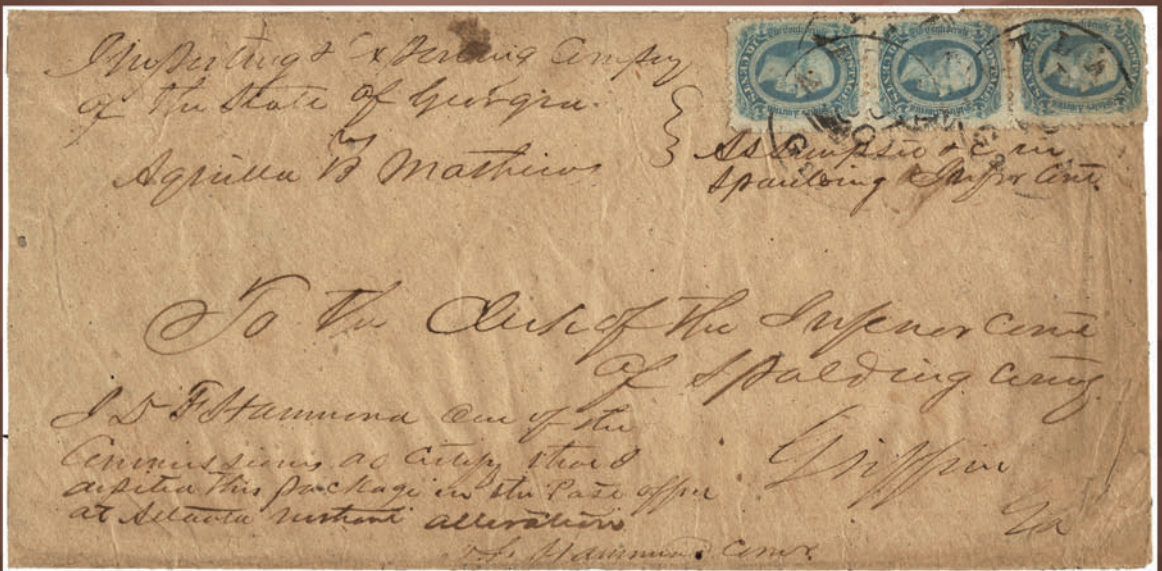 Importing & Exporting Compy
of the State of Georgia
vs
Aquilla B Mathews
Assumpsit &c in
Spaulding Infr Cort
To the Clerk of the Inferior Cort
of Spalding Couny
Griffin
Ga
I D F Hammond one of the
Commissioners do certify that I
deposited this package in the Post office
at Atlanta without alteration
Hammond Comr